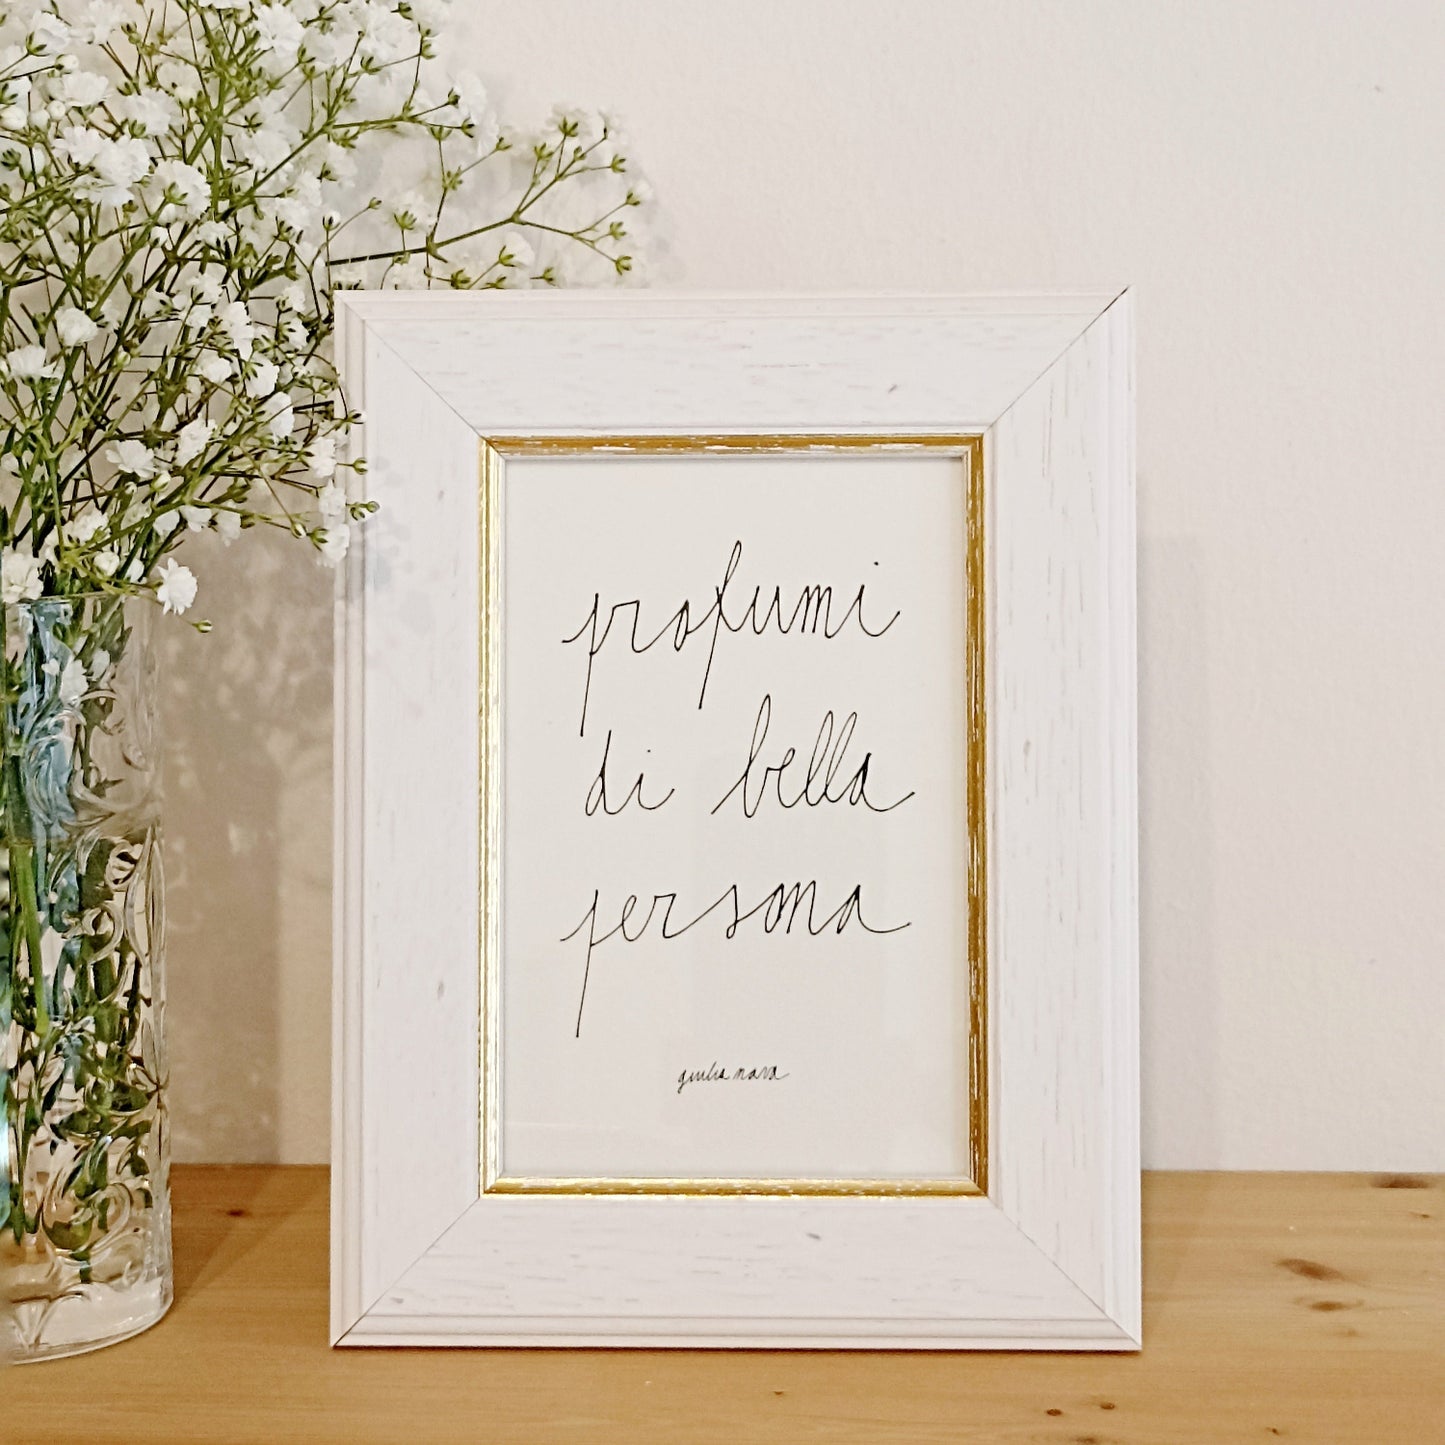 profumi
di bella
persona
giulia nava